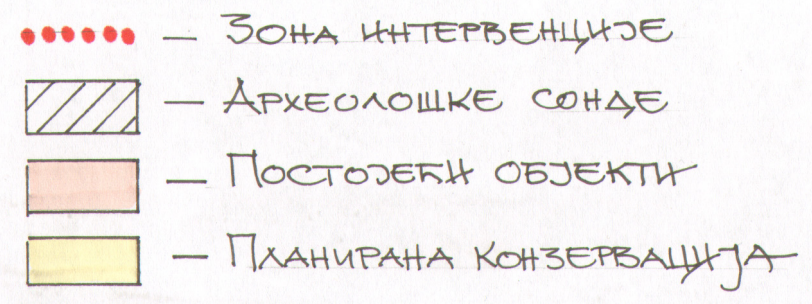 — Зона интервенције
— Археолошке сонде
— Постојећи објекти
— Планирана конзервација